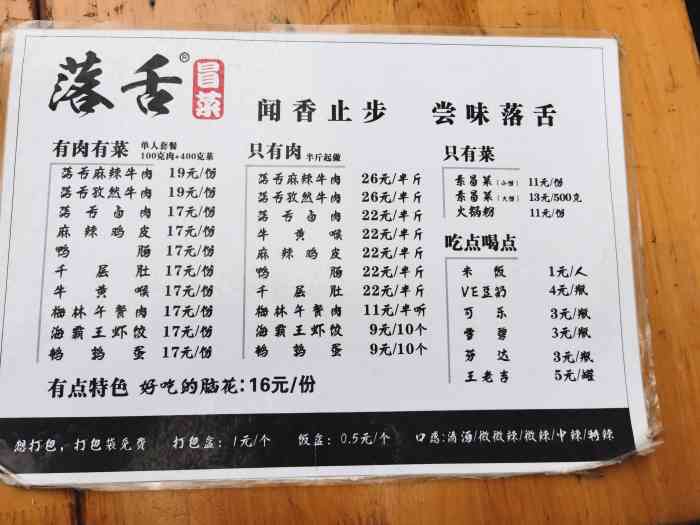 落舌®
冒菜
闻香止步 尝味落舌
有肉有菜 单人套餐
100克肉+400克菜
落舌麻辣牛肉 19元/份
落舌孜然牛肉 19元/份
落舌卤肉 17元/份
麻辣鸡皮 17元/份
鸭肠 17元/份
千层肚 17元/份
牛黄喉 17元/份
梅林午餐肉 17元/份
海霸王虾饺 17元/份
鹌鹑蛋 17元/份
只有肉 半斤起做
落舌麻辣牛肉 26元/半斤
落舌孜然牛肉 26元/半斤
落舌卤肉 22元/半斤
牛黄喉 22元/半斤
麻辣鸡皮 22元/半斤
鸭肠 22元/半斤
千层肚 22元/半斤
梅林午餐肉 11元/半听
海霸王虾饺 9元/10个
鹌鹑蛋 9元/10个
只有菜
素冒菜(小份) 11元/份
素冒菜(大份) 13元/500克
火锅粉 11元/份
吃点喝点
米饭 1元/人
VE豆奶 4元/瓶
可乐 3元/瓶
雪碧 3元/瓶
芬达 3元/瓶
王老吉 5元/罐
有点特色 好吃的脑花:16元/份
想打包,打包袋免费 打包盒:1元/个 饭盒:0.5元/个 口感:清汤/微微辣/微辣/中辣/特辣